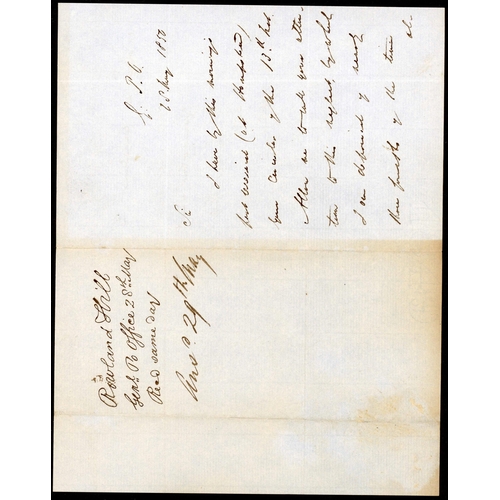 G. P. O.
28 May 1850
Sir
I have by this morning's
post received (at Hampstead)
your Circular of the 13th Inst.
Allow me to call your atten-
tion to this neglect, by which
I am deprived of nearly
three fourths of the time al-
Rowland Hill
Genl. Po Office 28th May
Recd same day
Ansd. 29th May